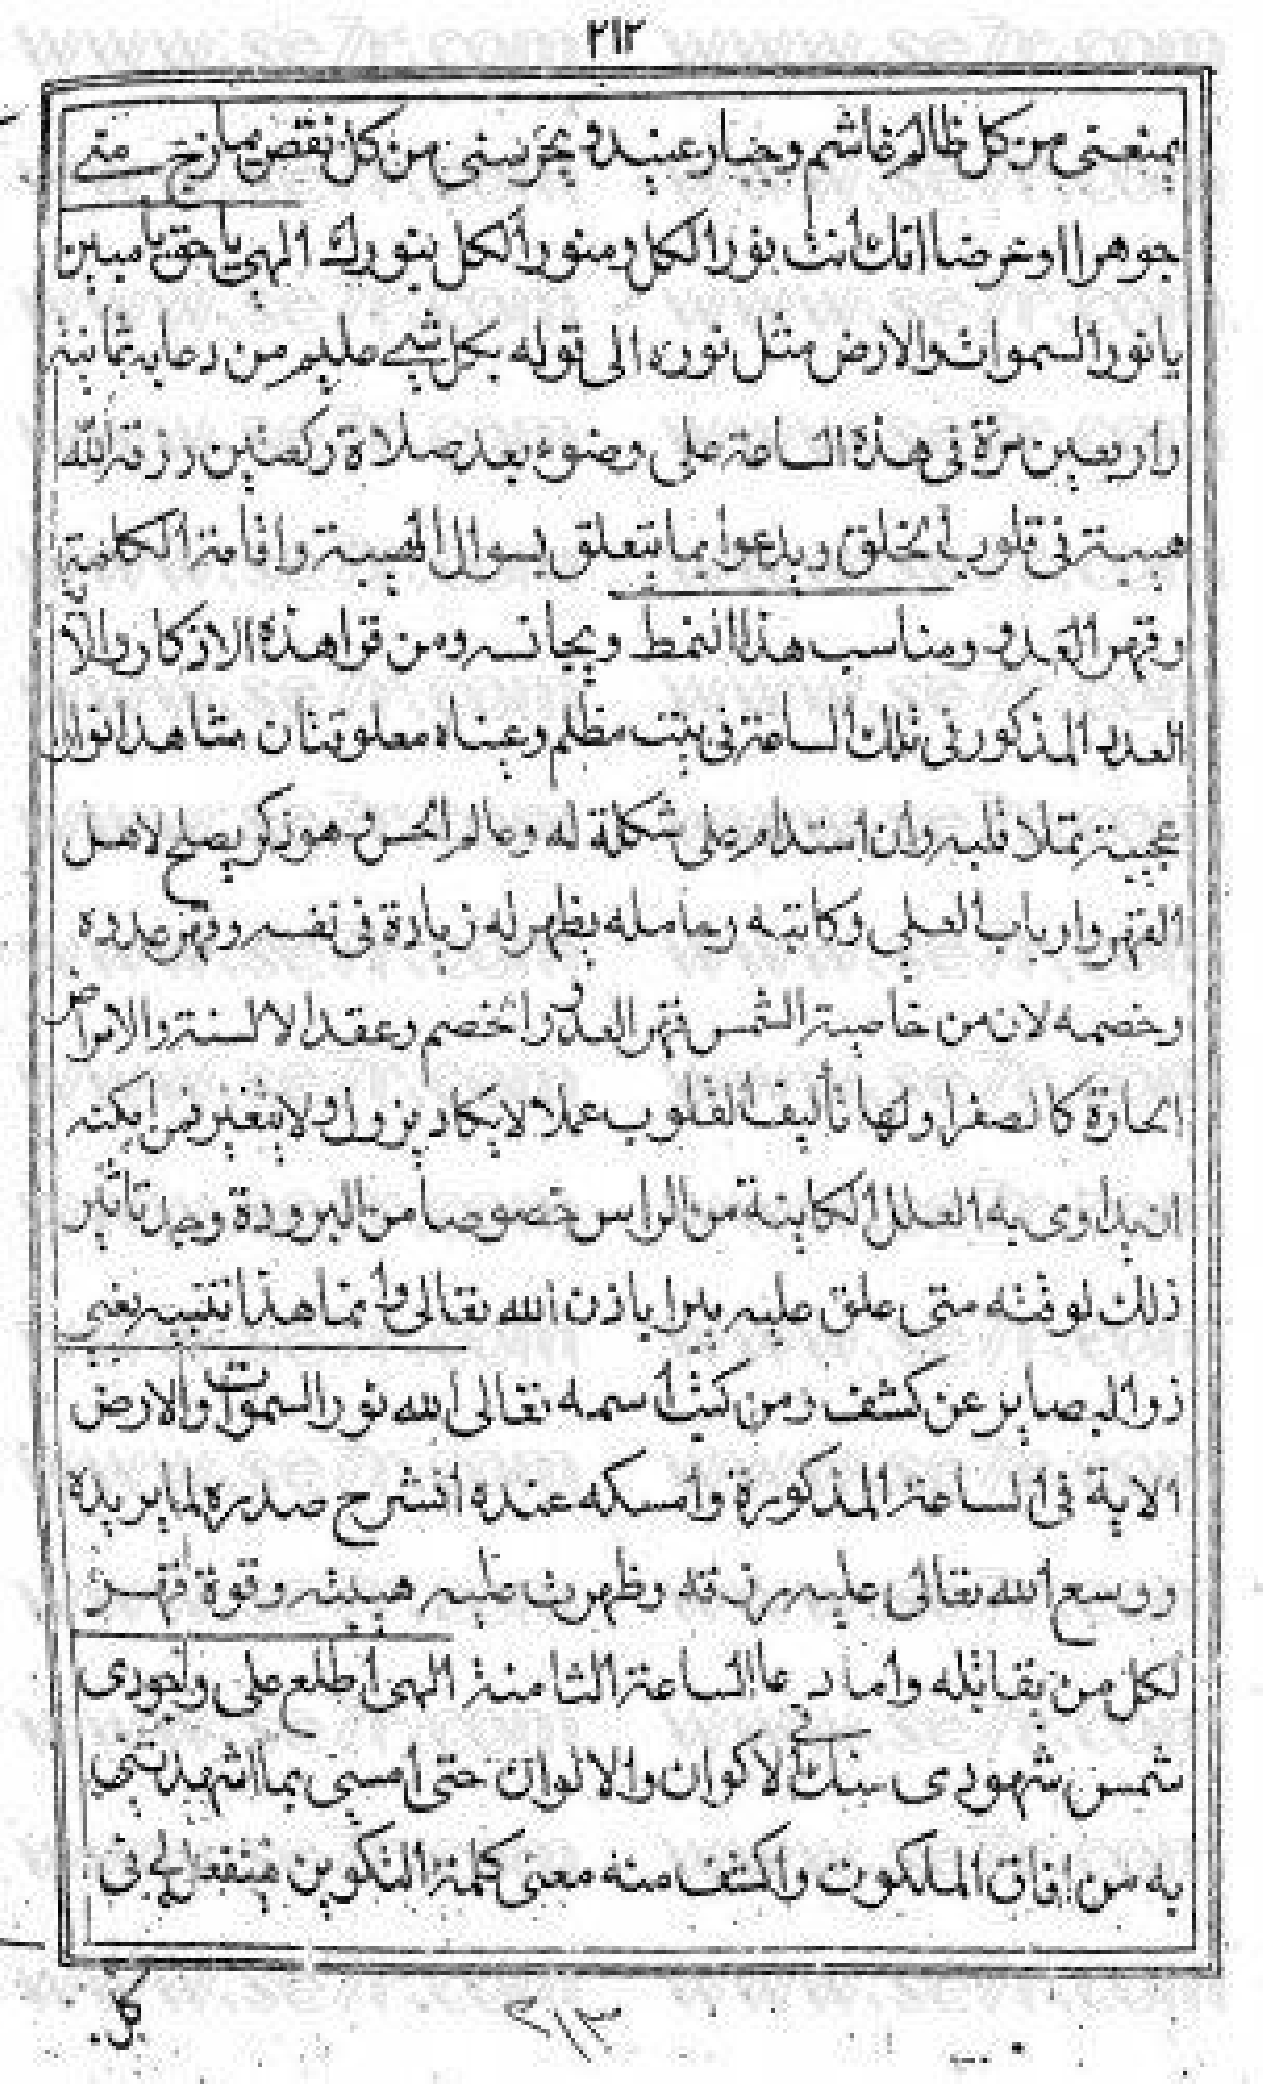 ٢١٢
يمنعنى من كل ظالم غاشم وجبار عنيد ويحرسنى من كل نقص يمازج متى
جوهرا او عرضا انك انت نور الكل ومنور الكل بنورك الهى يا حق يا مبين
يا نور السموات والارض مثل نوره الى قوله بكل شيء عليم من دعا به ثمانية
واربعين مرة فى هذه الساعة على وضوء بعد صلاة ركعتين رزقه الله
هيبة فى قلوب الخلق ويدعوا بما يتعلق بسوال الهيبة واقامة الكلمة
وقهر العدو ومناسب هذا النمط ويجانسه ومن قرا هذه الاذكار والا
العدد المذكور فى تلك الساعة فى بيت مظلم وعيناه مغلوقتان مشاهد انوار
عجيبة تملا قلبه وان استدام على شكلة له وعالم الحس وهو ذكر يصلح لاهل
القهر وارباب العلى وكاتبه وحامله يظهر له زيادة فى نفسه وقهر عدوه
وخصمه لانه من خاصية الشمس قهر العدو والخصم وعقد الالسنة والامراض
الحارة كالصفرا ولها تأليف القلوب عملا لا يكاد يزول ولا يتغير فمن امكنه
ان يداوى به العلل الكاينة من الراس خصوصا من البرودة وجد تاثير
ذلك لوقته متى علق عليه يبرا باذن الله تعالى وانما هذا تنبيه يغنى
ذوا البصاير عن كشف ومن كتب اسمه تعالى الله نور السموات والارض
الاية فى الساعة المذكورة وامسكه عنده انشرح صدره لما يريده
ووسع الله تعالى عليه رزقه وظهرت عليه هيبته وقوة قهر
لكل من يقابله واما دعا الساعة الثامنة الهى اطلع على وجودى
شمس شهودى منك فى الاكوان والالوان حتى امسى بما اشهدتنى
به من افاق الملكوت واكشف منه معنى كلمة التكوين فينفعل لى فى
كل
٢١٣